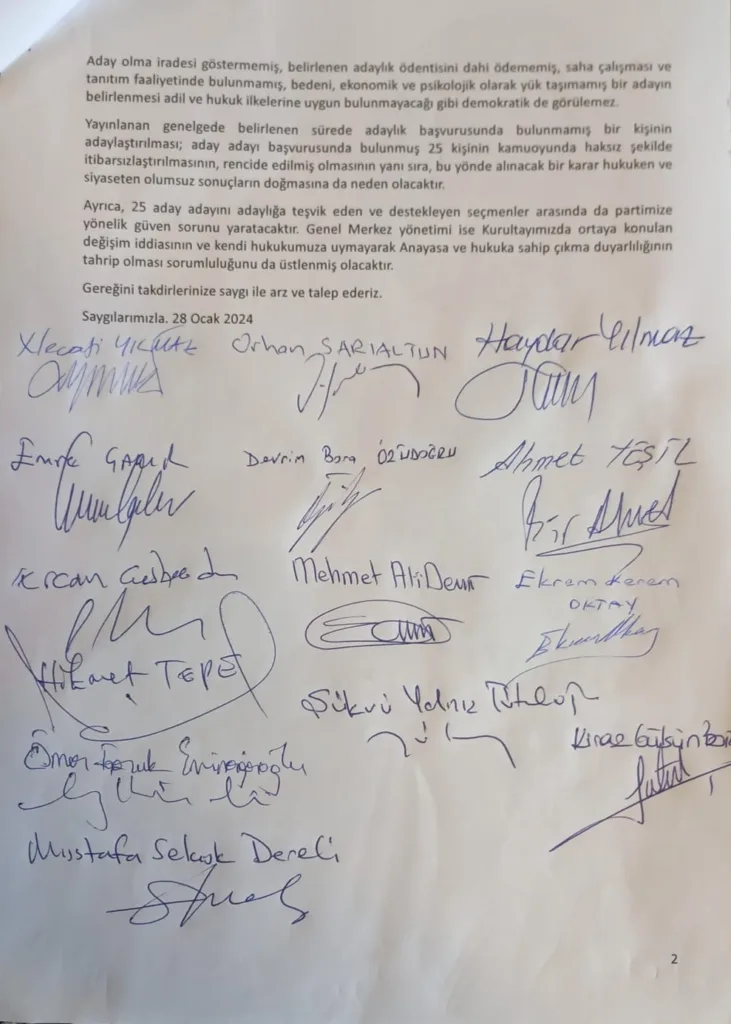 Aday olma iradesi göstermemiş, belirlenen adaylık ödentisini dahi ödememiş, saha çalışması ve
tanıtım faaliyetinde bulunmamış, bedeni, ekonomik ve psikolojik olarak yük taşımamış bir adayın
belirlenmesi adil ve hukuk ilkelerine uygun bulunmayacağı gibi demokratik de görülemez.
Yayınlanan genelgede belirlenen sürede adaylık başvurusunda bulunmamış bir kişinin
adaylaştırılması; aday adayı başvurusunda bulunmuş 25 kişinin kamuoyunda haksız şekilde
itibarsızlaştırılmasının, rencide edilmiş olmasının yanı sıra, bu yönde alınacak bir karar hukuken ve
siyaseten olumsuz sonuçların doğmasına da neden olacaktır.
Ayrıca, 25 aday adayını adaylığa teşvik eden ve destekleyen seçmenler arasında da partimize
yönelik güven sorunu yaratacaktır. Genel Merkez yönetimi ise Kurultayımızda ortaya konulan
değişim iddiasının ve kendi hukukumuza uymayarak Anayasa ve hukuka sahip çıkma duyarlılığının
tahrip olması sorumluluğunu da üstlenmiş olacaktır.
Gereğini takdirlerinize saygı ile arz ve talep ederiz.
Saygılarımızla. 28 Ocak 2024
Necati YILMAZ Orhan SARIALTUN Haydar Yılmaz
Emre Devrim Bora ÖZÜNDOĞRU Ahmet YEŞİL
Ercan Mehmet Ali Demir Ekrem Kerem
OKTAY
Hikmet TEPE
Şükrü Yalnız
Kiraz Gülsün
Ömer Faruk Eminağaoğlu
Mustafa Selçuk Dereli
2